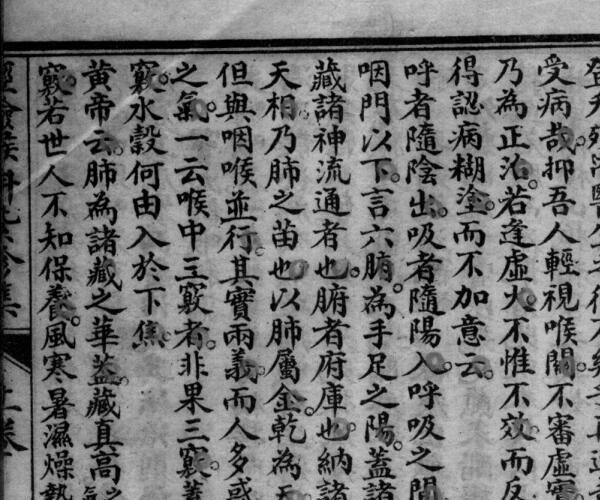 受病哉抑吾人輕視喉關不審虛實
乃為正治若逢虛火不惟不效而反
得認病糊塗而不加意云
呼者隨陰出吸者隨陽入呼吸之間
咽門以下言六腑為手足之陽蓋諸
藏諸神流通者也腑者府庫也納諸
天相乃肺之苗也以肺屬金乾為天
但與咽喉並行其實兩義而人多惑
之氣一云喉中三竅者非果三竅蓋
竅水穀何由入於下焦
黃帝云肺為諸藏之華蓋藏真高之氣
竅若世人不知保養風寒暑濕燥熱
經驗喉科